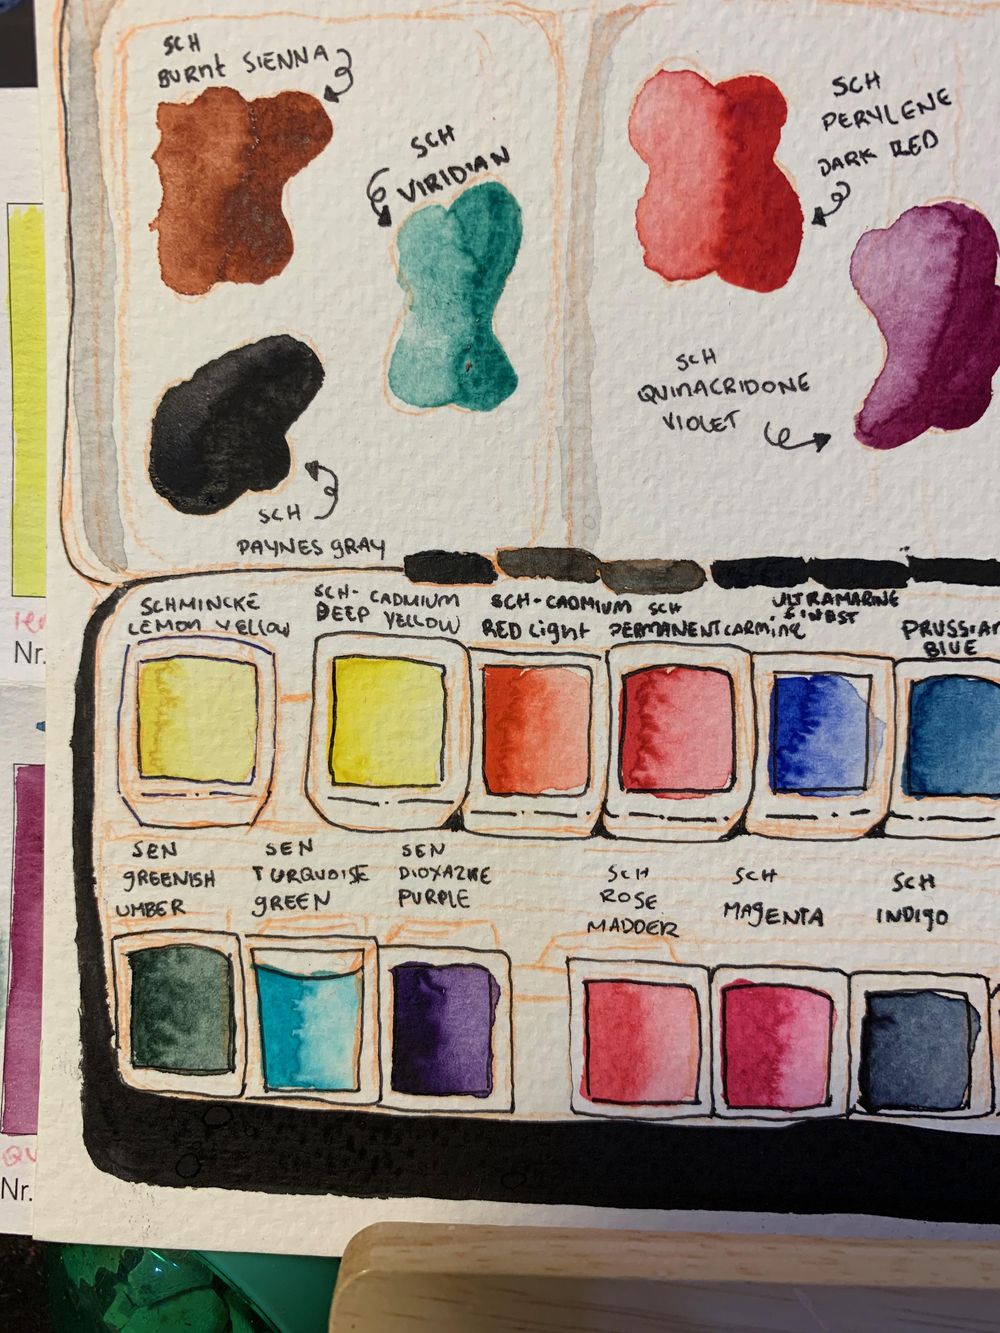 SCH
BURNT SIENNA
SCH
VIRIDIAN
SCH
PAYNES GRAY
SCH
PERYLENE
DARK RED
SCH
QUINACRIDONE
VIOLET
SCHMINCKE
LEMON YELLOW
SCH- CADMIUM
DEEP YELLOW
SCH-CADMIUM
RED Light
SCH
PERMANENT CARMINE
ULTRAMARINE
FINEST
PRUSSIAN
BLUE
SEN
GREENISH
UMBER
SEN
TURQUOISE
GREEN
SEN
DIOXAZINE
PURPLE
SCH
ROSE
MADDER
SCH
MAGENTA
SCH
INDIGO
Nr.
Nr.